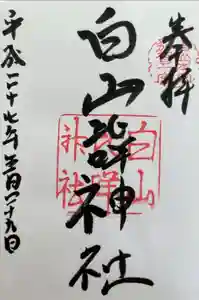 奉拝
白山神社
平成二十七年月二十九日
白山
神社